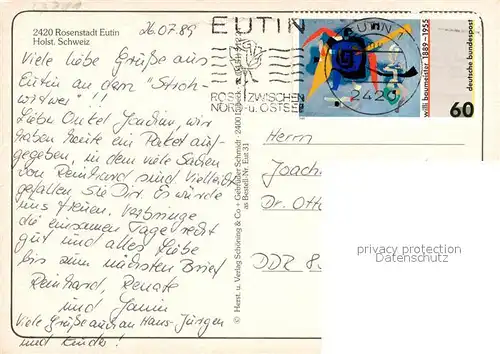 2420 Rosenstadt Eutin
Holst. Schweiz
26.07.89
Viele liebe Grüße aus
Eutin an den "Stroh-
witwer"!!
Lieber Onkel Joachim, wir
haben heute ein Paket auf-
gegeben, in dem viele Sachen
von Reinhard sind. Vielleicht
gefallen sie Dir. Es würde
uns freuen. Verbringe
die einsamen Tage recht
gut und alles Liebe
bis zum nächsten Brief
Reinhard, Renate
und
Viele Grüße auch an Hans-Jürgen
und Kinder!
© Herst. u. Verlag Schöning & Co + Gebrüder Schmidt · 2400 Lübeck
Bestell-Nr. Eut 31
EUTIN
ROSE ZWISCHEN
NORD- u. OSTSEE
EUTIN
2420
willi baumeister 1889-1955
deutsche bundespost
60
Herrn
Joach
Dr. Ott
DDR 8
privacy protection
datenschutz